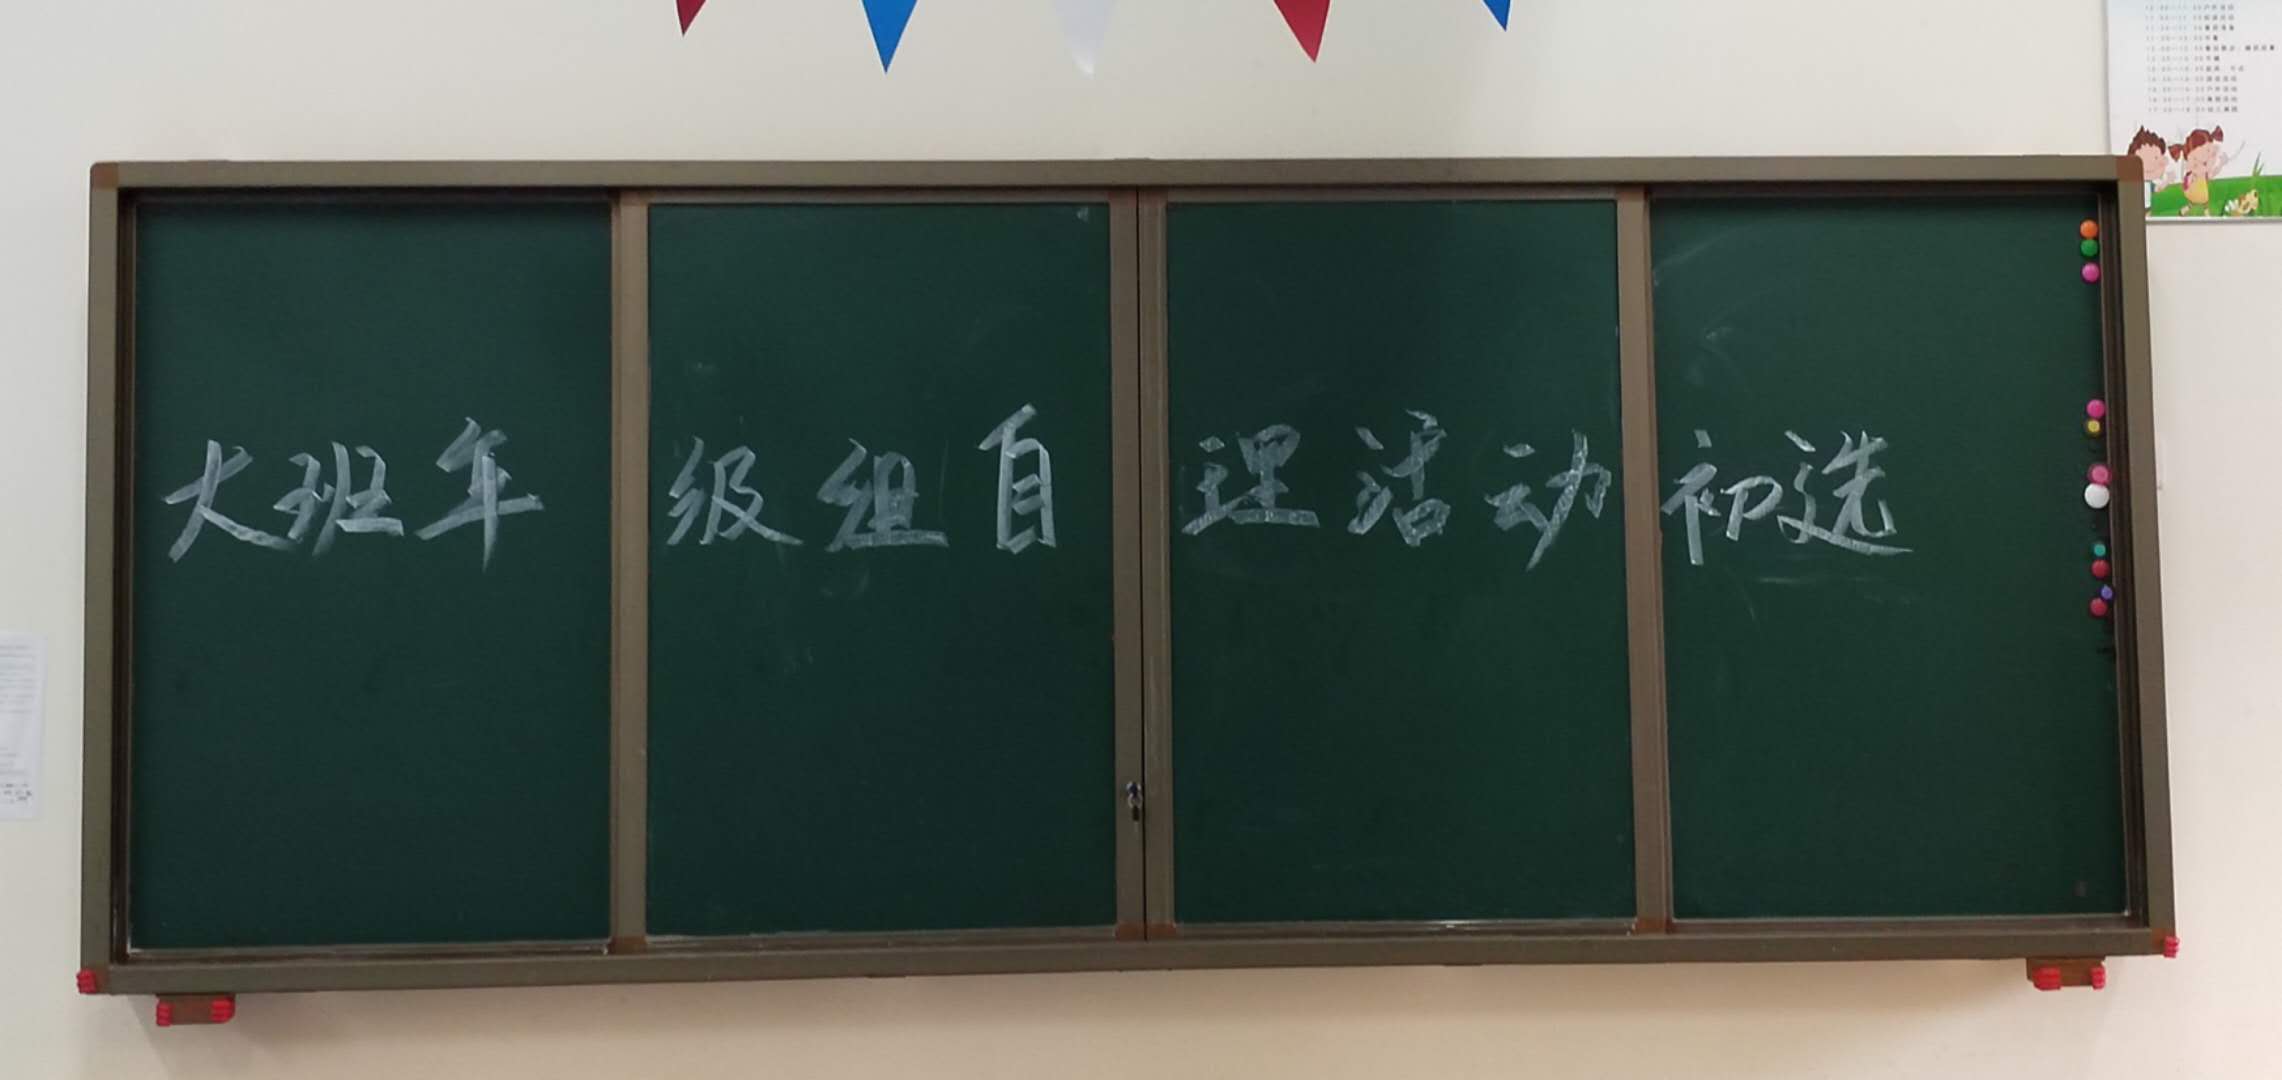 大班年级组自理活动初选